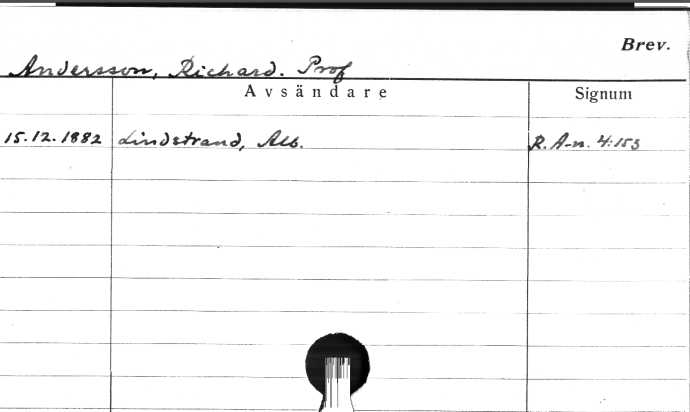 Brev.
Andersson, Richard. Prof
Avsändare Signum
15.12.1882 Lindstrand, Alb. R. A-n. 4:153